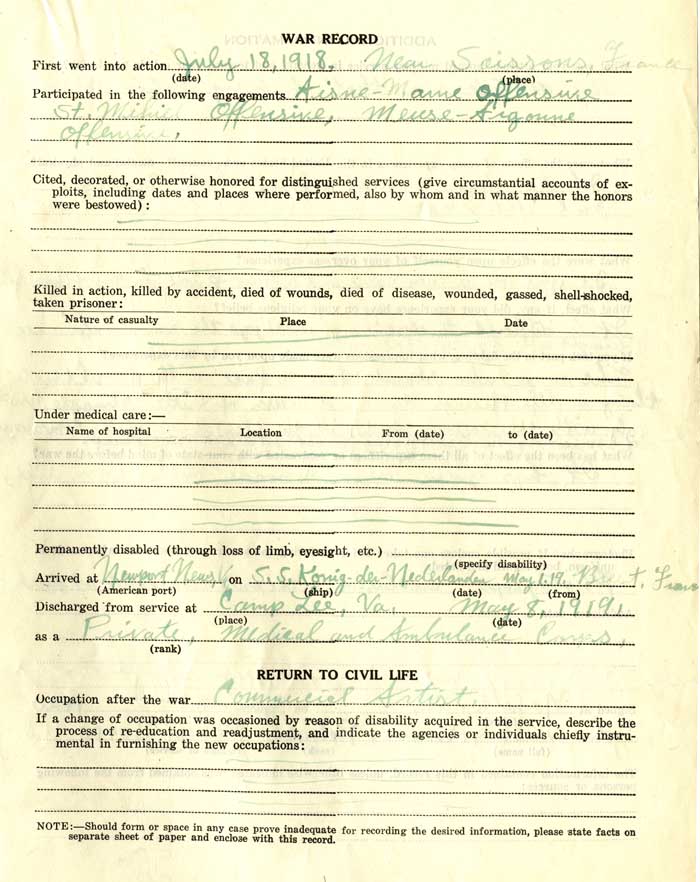 WAR RECORD
First went into action July 18, 1918. Near Soissons, France
(date) (place)
Participated in the following engagements Aisne-Marne Offensive
St. Mihiel Offensive, Meuse-Argonne
Offensive,
Cited, decorated, or otherwise honored for distinguished services (give circumstantial accounts of ex-
ploits, including dates and places where performed, also by whom and in what manner the honors
were bestowed) :
Killed in action, killed by accident, died of wounds, died of disease, wounded, gassed, shell-shocked,
taken prisoner:
Nature of casualty Place Date
Under medical care:—
Name of hospital Location From (date) to (date)
Permanently disabled (through loss of limb, eyesight, etc.)
(specify disability)
Arrived at Newport News, V on S. S. Konig-der-Nederlanden May 1, 19. Brest, France
(American port) (ship) (date) (from)
Discharged from service at Camp Lee, Va. May 8, 1919.
(place) (date)
as a Private, Medical and Ambulance Corps,
(rank)
RETURN TO CIVIL LIFE
Occupation after the war Commercial Artist
If a change of occupation was occasioned by reason of disability acquired in the service, describe the
process of re-education and readjustment, and indicate the agencies or individuals chiefly instru-
mental in furnishing the new occupations:
NOTE:—Should form or space in any case prove inadequate for recording the desired information, please state facts on
separate sheet of paper and enclose with this record.